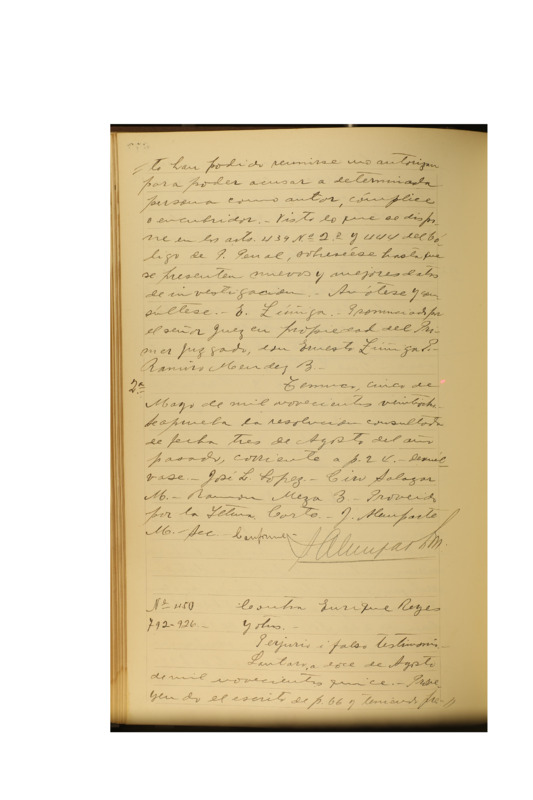 to han podido reunirse no autorizan
para poder acusar a determinada
persona como autor, cómplice
o encubridor.- Visto lo que se dispo-
ne en los arts. 439 Nº 2º y 444 del Có-
digo de P. Penal, sobreséese hasta que
se presenten nuevos y mejores datos
de investigación.- Anótese y con-
súltese.- E. Zúñiga.- Pronunciada por
el señor Juez en propiedad del Pri-
mer Juzgado, don Ernesto Zúñiga P.-
Ramiro Mendez B.-
2ª Temuco, cinco de
Mayo de mil novecientos veintiocho.
Se aprueba la resolución consultada
de fecha tres de Agosto del año
pasado, corriente a f. 24.- Devuél-
vase.- José L. Lopez.- Ciro Salazar
M.- Ramon Meza B.- Proveido
por la Iltma. Corte.- J. Alemparte
M.- Sec Conforme.-
J Alemparte M.
Nº 450 Contra Enrique Reyes
792-926.- y otros.-
Perjurio i falso testimonio
Lautaro, a doce de Agosto
de mil novecientos quince.- Prove-
yendo el escrito de f. 66 y teniendo pre-